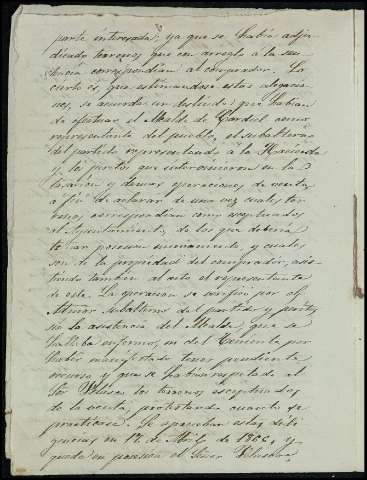 parte interesada, ya que se había adju-
dicado terrenos que con arreglo a la sen-
tencia correspondian al comprador. Lo
cierto es, que estimandose estas alegacio-
nes, se acuerda un deslinde que habian
de efectuar el Alcalde de Cardiel como
representante del pueblo, el subalterno
del partido representando á la Hacienda
y los peritos que intervinieron en la
tasacion y demas operaciones de venta
á fin de aclarar de una vez cuales ter-
renos correspondian como exceptuados
al Ayuntamiento, de los que deberia
tomar posesion nuevamente, y cuales
son de la propiedad del comprador, asis-
tiendo tambien al acto el representante
de este. La operacion se verificó por el
subalterno del partido y peritos
sin la asistencia del Alcalde, que se
hallaba enfermo, ni del Teniente por
haber manifestado tener pendiente
recurso y que se habian respetado al
Sor los terrenos exceptuados
de la venta, protestando cuanto se
practicase. Se aprueban estas dili-
gencias en 17 de Abril de 1866, y
queda en posesion el Señor